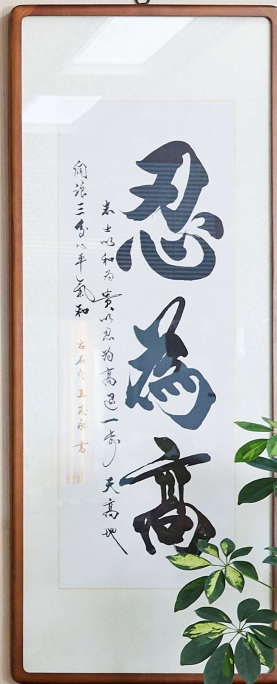 忍為高
志士以和為貴以忍為高退一步天高地
闊讓三分心平氣和
王志永書